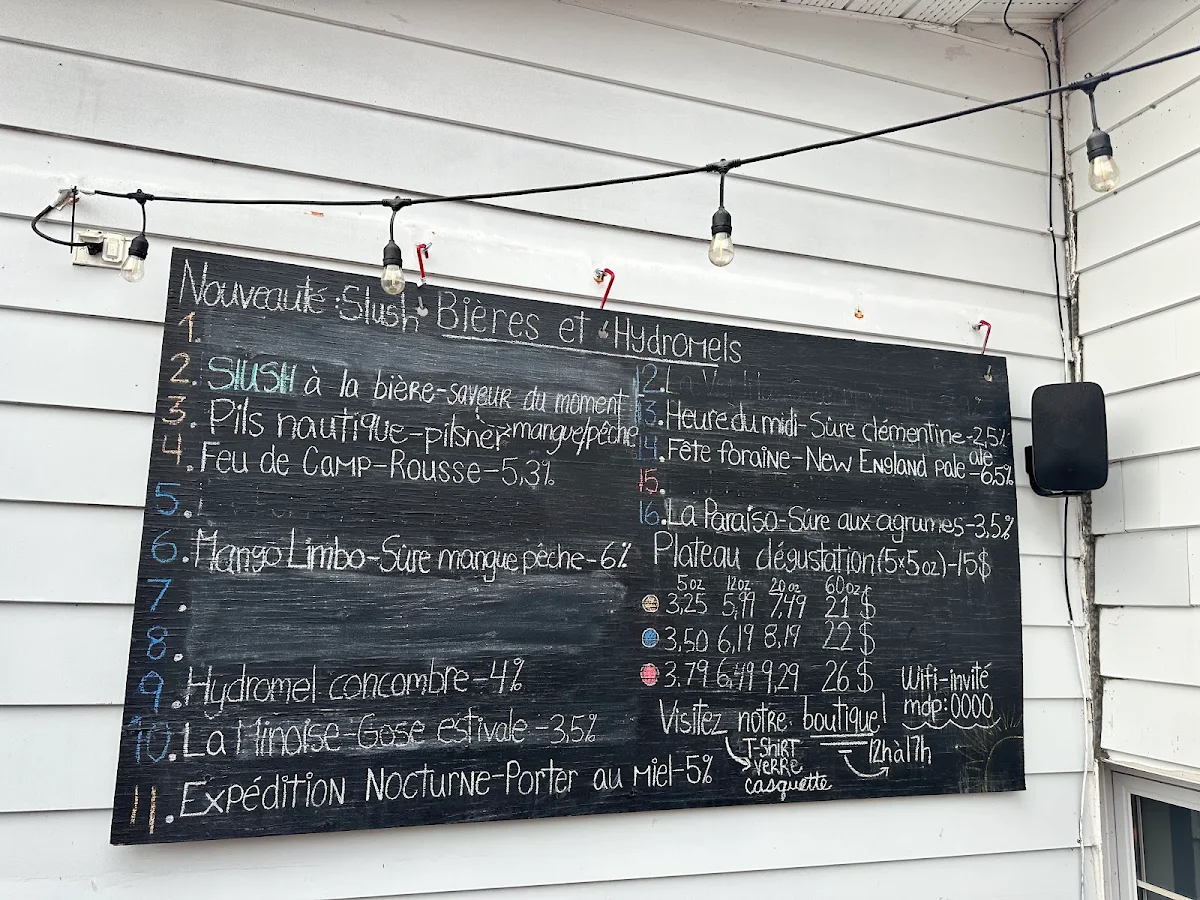 Nouveauté : Slush Bières et Hydromels
1.
2. SLUSH à la bière-saveur du moment
↳mangue/pêche
3. Pils nautique-pilsner
4. Feu de Camp-Rousse-5,3%
5.
6. Mango Limbo-Sûre mangue pêche-6%
7.
8.
9. Hydromel concombre-4%
10. La Minoise-Gose estivale-3,5%
11. Expédition Nocturne-Porter au Miel-5%
12.
13. Heure du midi-Sûre clémentine-2,5%
14. Fête foraine-New England pale ale-6,5%
15.
16. La Paraiso-Sûre aux agrumes-3,5%
Plateau dégustation (5x5oz)-15$
5oz 12oz 20oz 60oz
3,25 5,99 7,49 21$
3,50 6,19 8,19 22$
3,79 6,49 9,29 26$
Wifi-invité
mdp:0000
Visitez notre boutique!
T-SHIRT
VERRE
casquette
12h à 17h